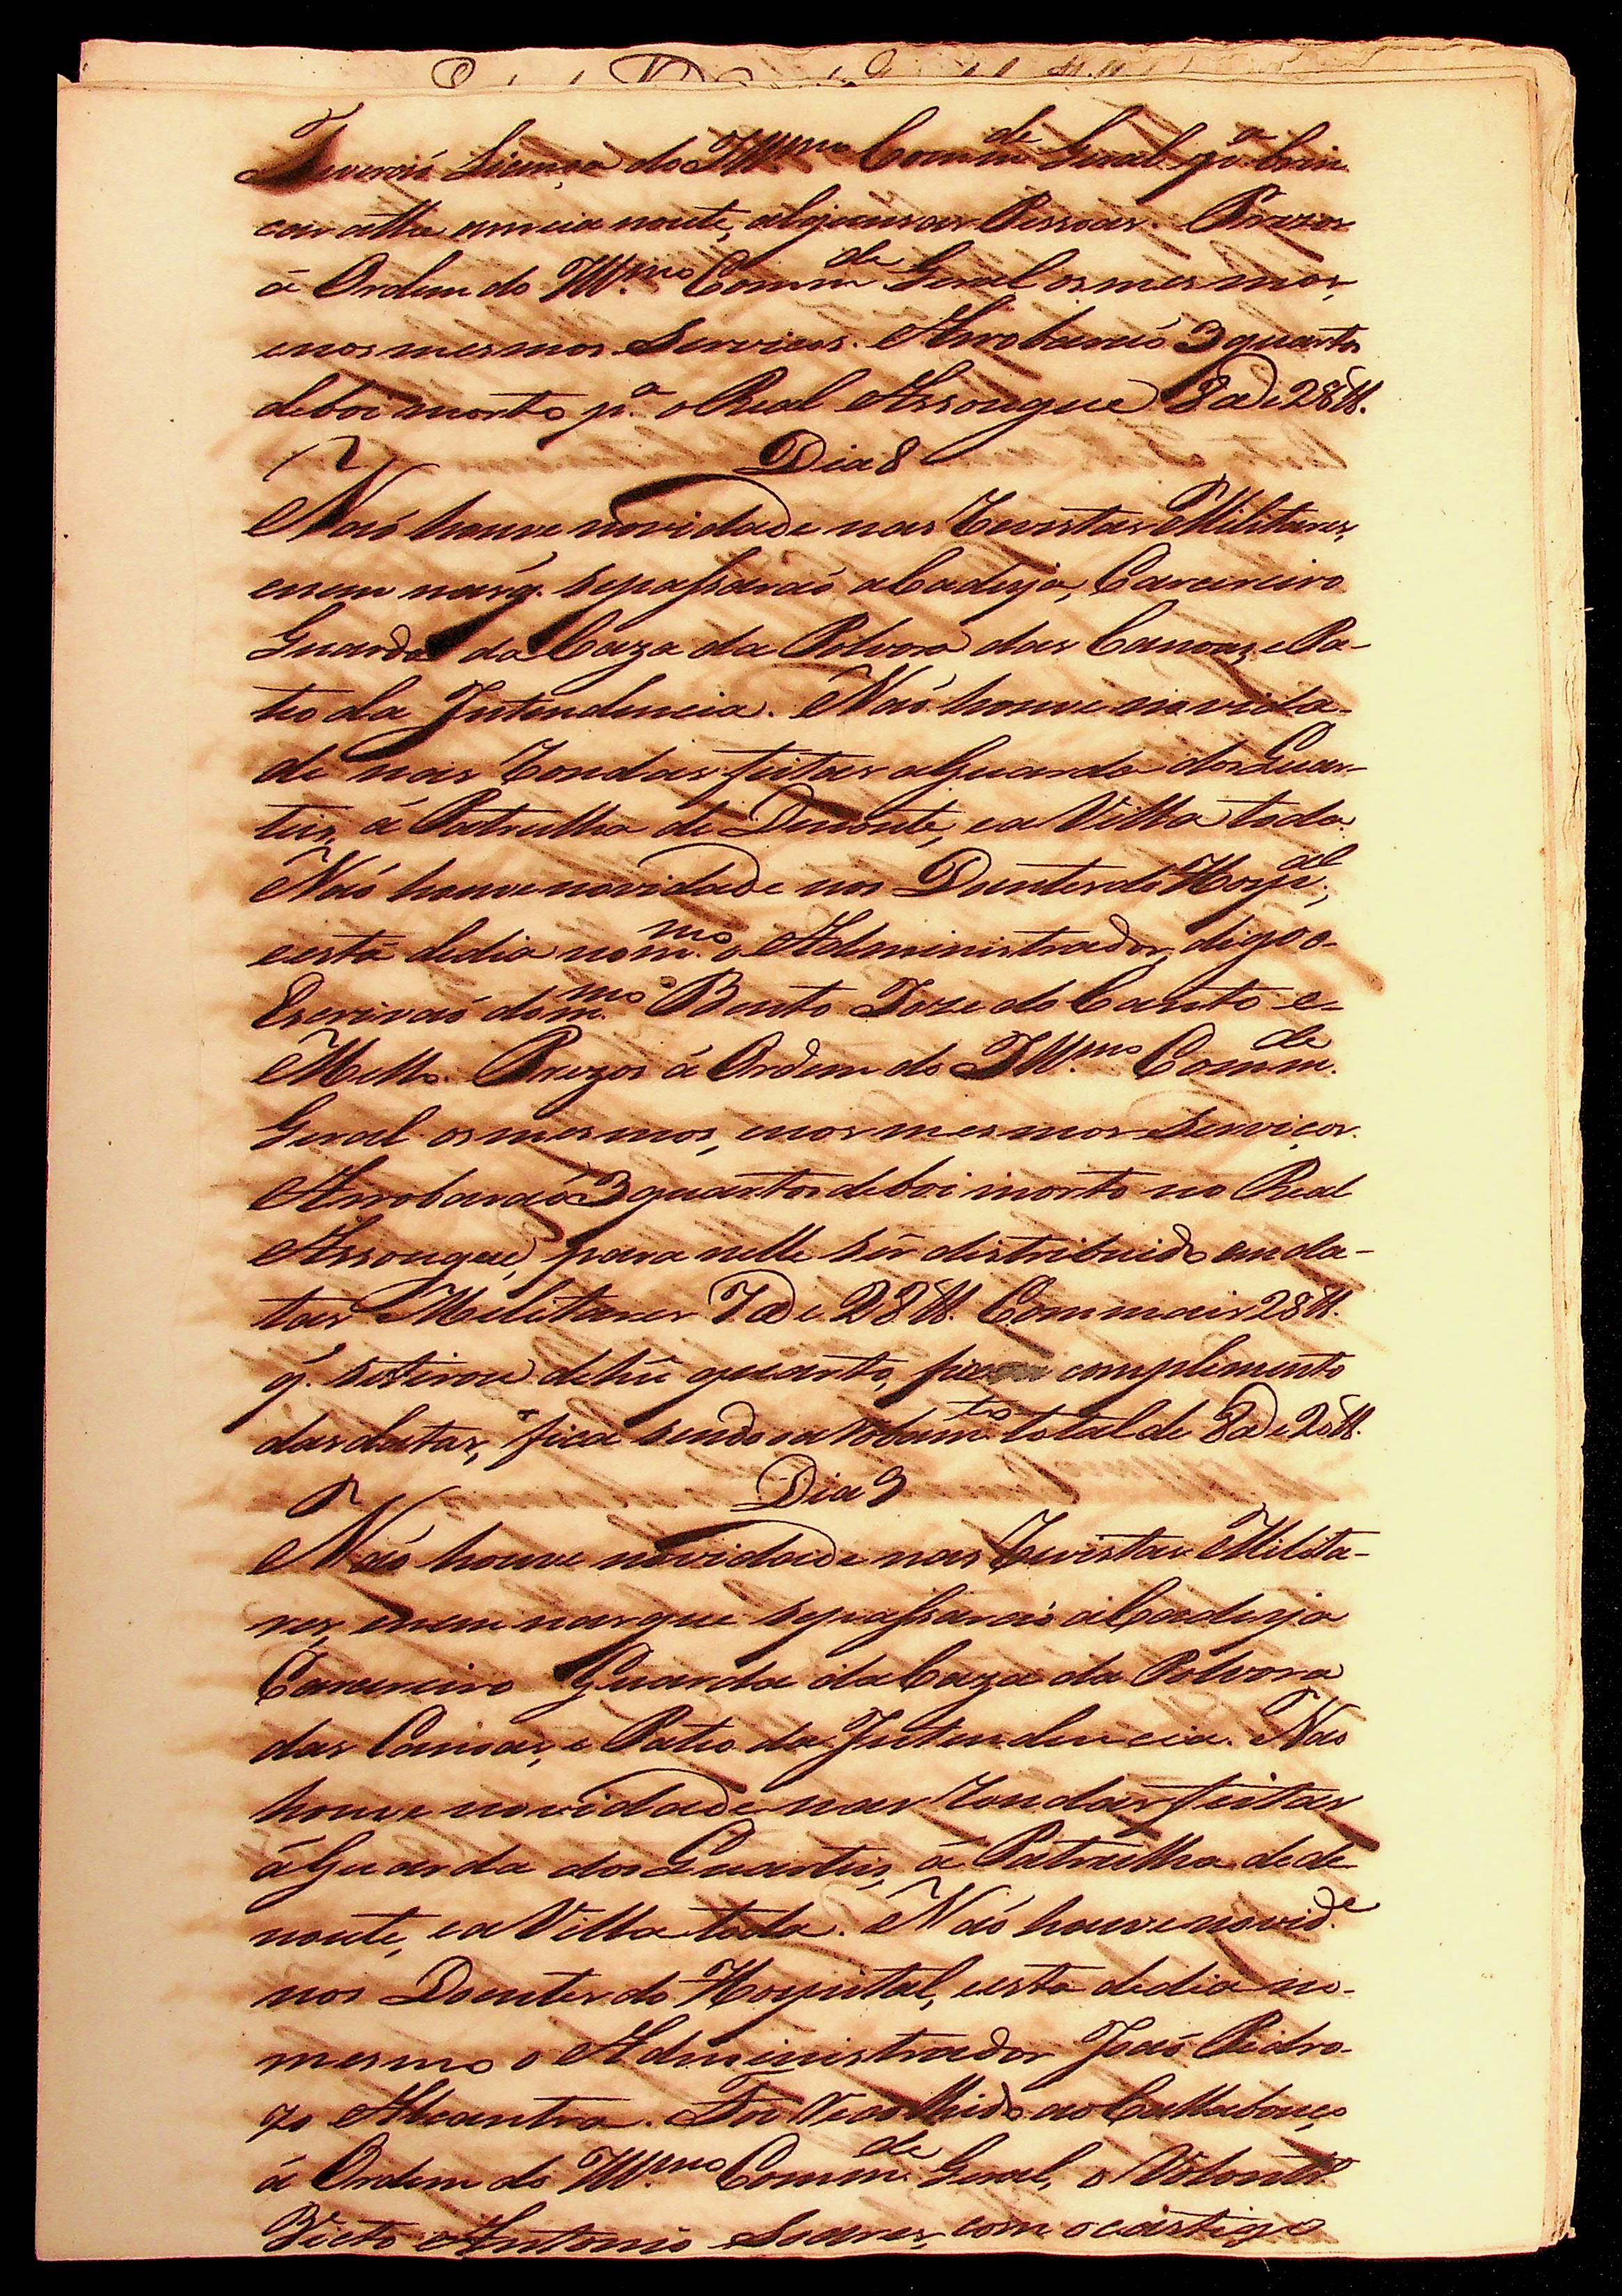 Tiveraó Licença do Illmo Commde Geral pa brin
car athe a meia noute, algumas Pessoas. Prezos
á Ordem do Illmo Commde Geral os mesmos,
e nos mesmos Serviços. Arrobaraó 3 quartos
de boi morto pa o Real Assougue 8@ e 28 lb.
Dia 8
Naó houve novidade nas Revistas Militares,
e nem nas q. se passaraó a Cadeya, Carcereiro
Guarda da Caza da Polvora das Canoas, e Pa-
teo da Intendencia. Naó houve novida-
de nas Rondas feitas a Guarda dos Quar-
teis, á Patrulha de Denoute, e a Villa toda.
Naó houve novidade nos Doentes do Hospal;
e está de dia no mmo o Administrador, digo o-
Escrivaó do mmo Bento Joze do Canto e-
Mello. Prezos á Ordem do Illmo Commde
Geral os mesmos, e nos mesmos Serviços.
Arrobaraó 3 quartos de boi morto no Real
Assougue, para nelle sêr distribuido em da-
tas Militares 7@ e 28 lb. Com mais 28 lb.
q. se tirou de hũ quarto, para complemento
das datas, fica sendo o total de 8@ e 20 lb.
Dia 9
Naó houve novidade nas Revistas Milita-
res, e nem nas que se passaraó a Cadeya
Carcereiro Guarda da Caza da Polvora
das Canoas, e Pateo da Intendencia. Nao
houve novidade nas Rondas feitas
á Guarda dos Quarteis, á Patrulha de de
noute, e a Villa toda. Naó houve novide
nos Doentes do Hospital, e está de dia no-
mesmo o Administrador Joaó Pedro-
zo Alcantra. Foi Recolhido ao Callabouço
á Ordem do Illmo Commde Geral, o Volontro
Antonio Soares, com o castigo